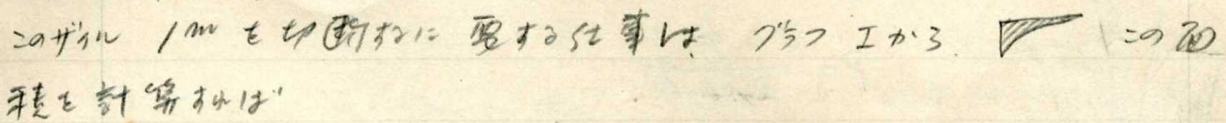 このザイル 1mを切断するに要する仕事は、グラフIから. この面
積を計算すれば